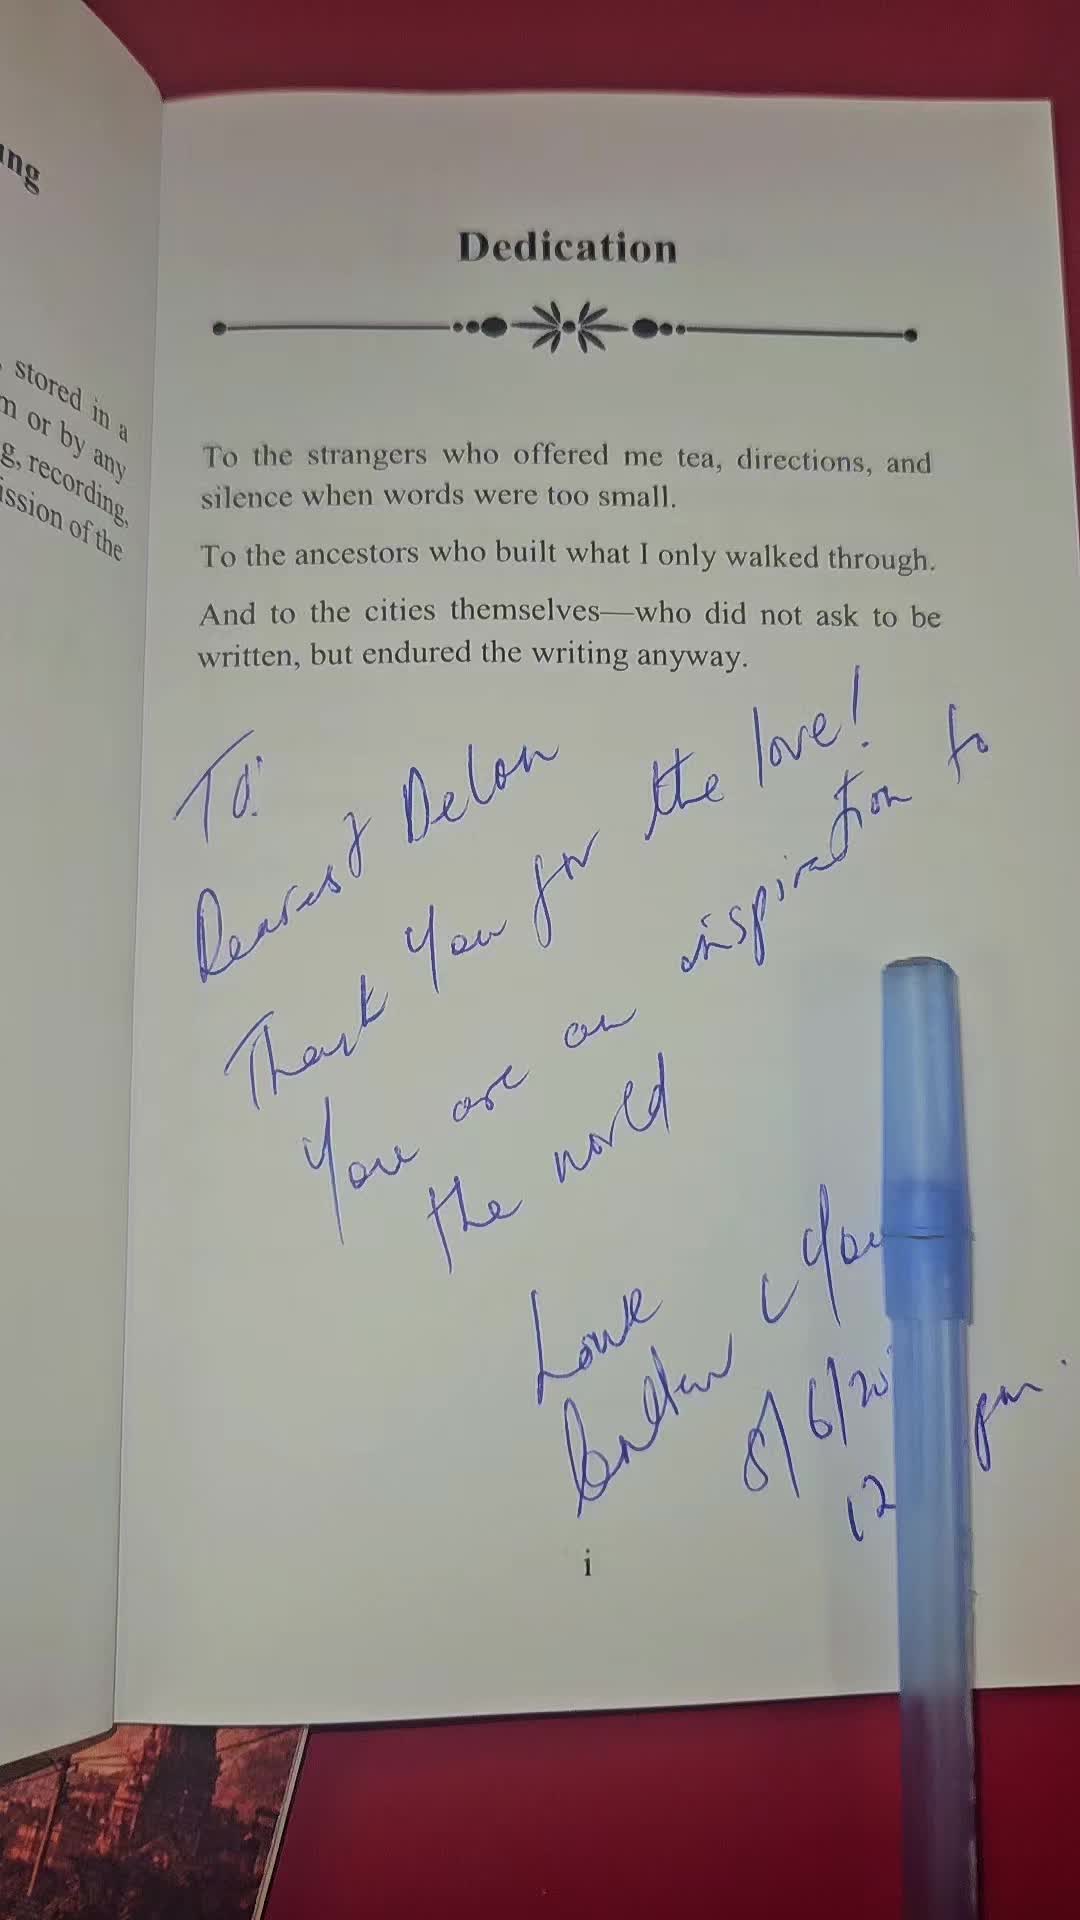 ing
stored in a
m or by any
g, recording,
ission of the
Dedication
To the strangers who offered me tea, directions, and
silence when words were too small.
To the ancestors who built what I only walked through.
And to the cities themselves—who did not ask to be
written, but endured the writing anyway.
To:
Dearest Delon
Thank You for the love!
You are an inspiration to
the world
Love
8/6/20
12 pm.
i